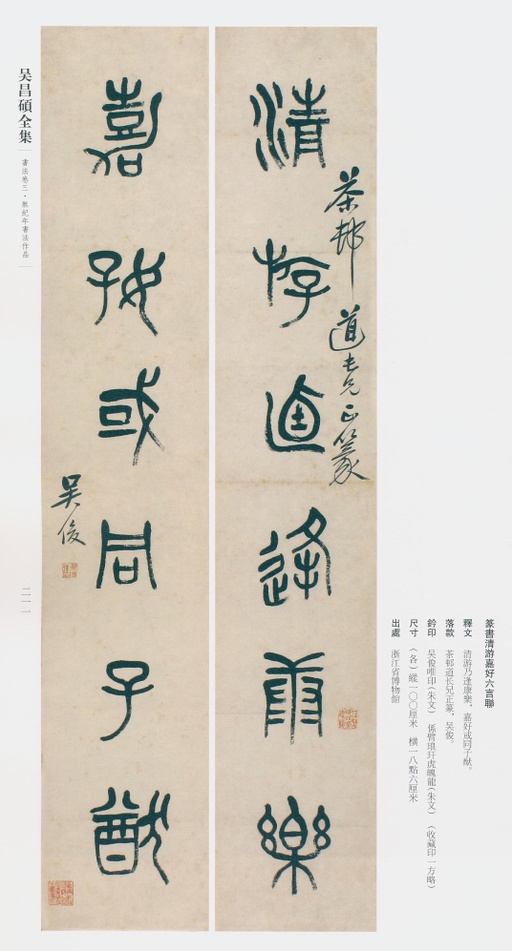 篆書清游嘉好六言聯
釋文　清游乃逢康樂，嘉好或同子猷。
落款　茶邨道长兄正篆，吴俊。
鈐印　吴俊唯印(朱文)　係臂琅玕虎魄龍(朱文)　(收藏印一方略)
尺寸　(各)縱一〇〇厘米　横一八點六厘米
出處　浙江省博物館
清游逌逢康樂
茶邨道長兄正篆
嘉好或同子猷
吴俊
吴昌碩全集
書法卷三·無紀年書法作品
二一一